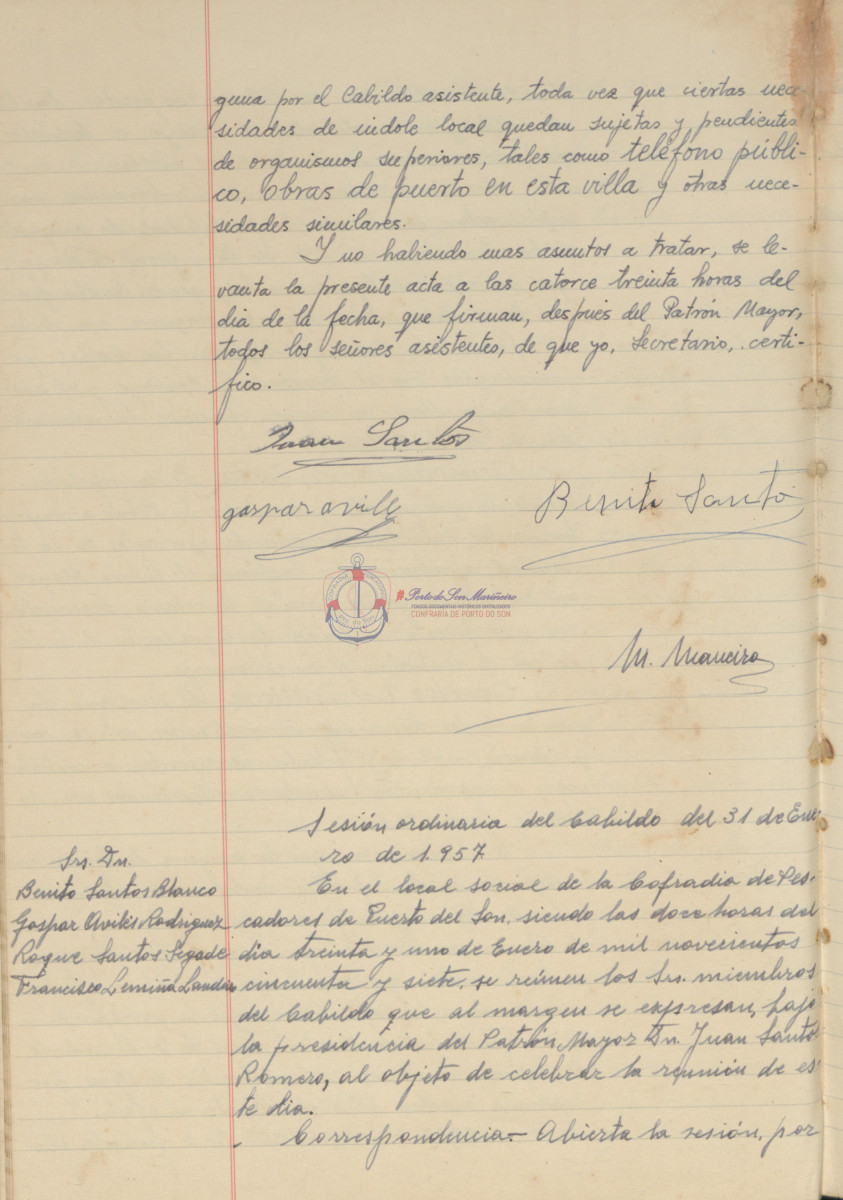 guna por el Cabildo asistente, toda vez que ciertas nece-
sidades de indole local quedan sujetas y pendientes
de organismos superiores, tales como teléfono públi-
co, obras de puerto en esta villa y otras nece-
sidades similares.
Y no habiendo mas asuntos a tratar, se le-
vanta la presente acta a las catorce treinta horas del
dia de la fecha, que firman, después del Patrón Mayor,
todos los señores asistentes, de que yo, Secretario, certi-
fico.
Juan Santos
gaspar avill
Benito Santo
#Porto do Son Mariñeiro
FONDOS DOCUMENTAIS HISTÓRICOS DIXITALIZADOS
CONFRARÍA DE PORTO DO SON
M. Maneiro
Sesión ordinaria del Cabildo del 31 de Ene-
ro de 1.957
Srs. Dn.
Benito Santos Blanco
Gaspar Avilés Rodriguez
Roque Santos Segade
Francisco Lemiña
En el local social de la Cofradia de Pes-
cadores de Puerto del Son, siendo las doce horas del
dia treinta y uno de Enero de mil novecientos
cincuenta y siete, se reúnen los Srs. miembros
del Cabildo que al margen se expresan, bajo
la presidencia del Patrón Mayor Dn. Juan Santos
Romero, al objeto de celebrar la reunión de es-
te dia.
Correspondencia.- Abierta la sesión, por